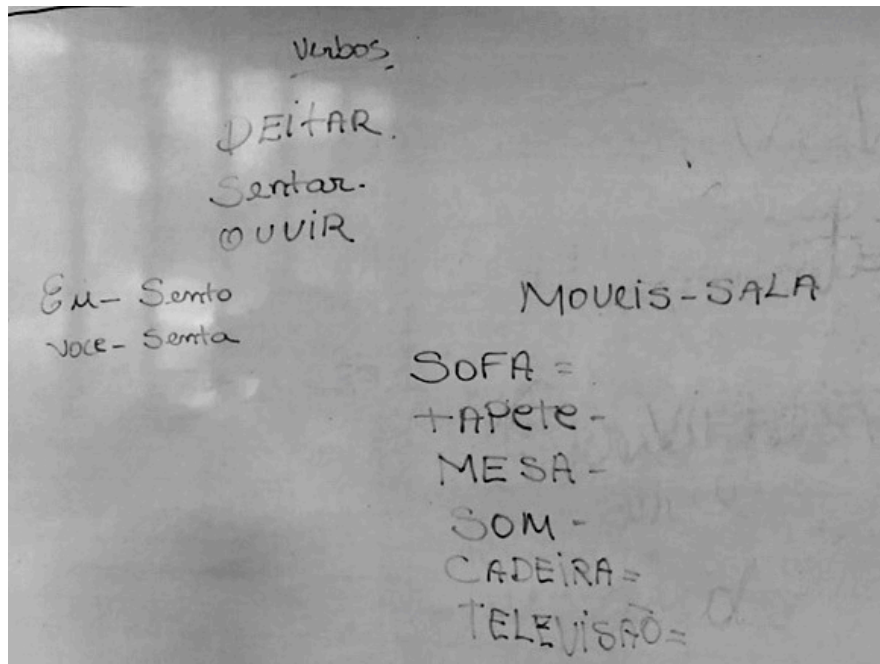 Verbos
DEITAR.
Sentar.
OUVIR
Eu - Sento
voce - Senta
MOVEIS - SALA
SOFA =
TAPETE -
MESA -
SOM -
CADEIRA =
TELEVISÃO =